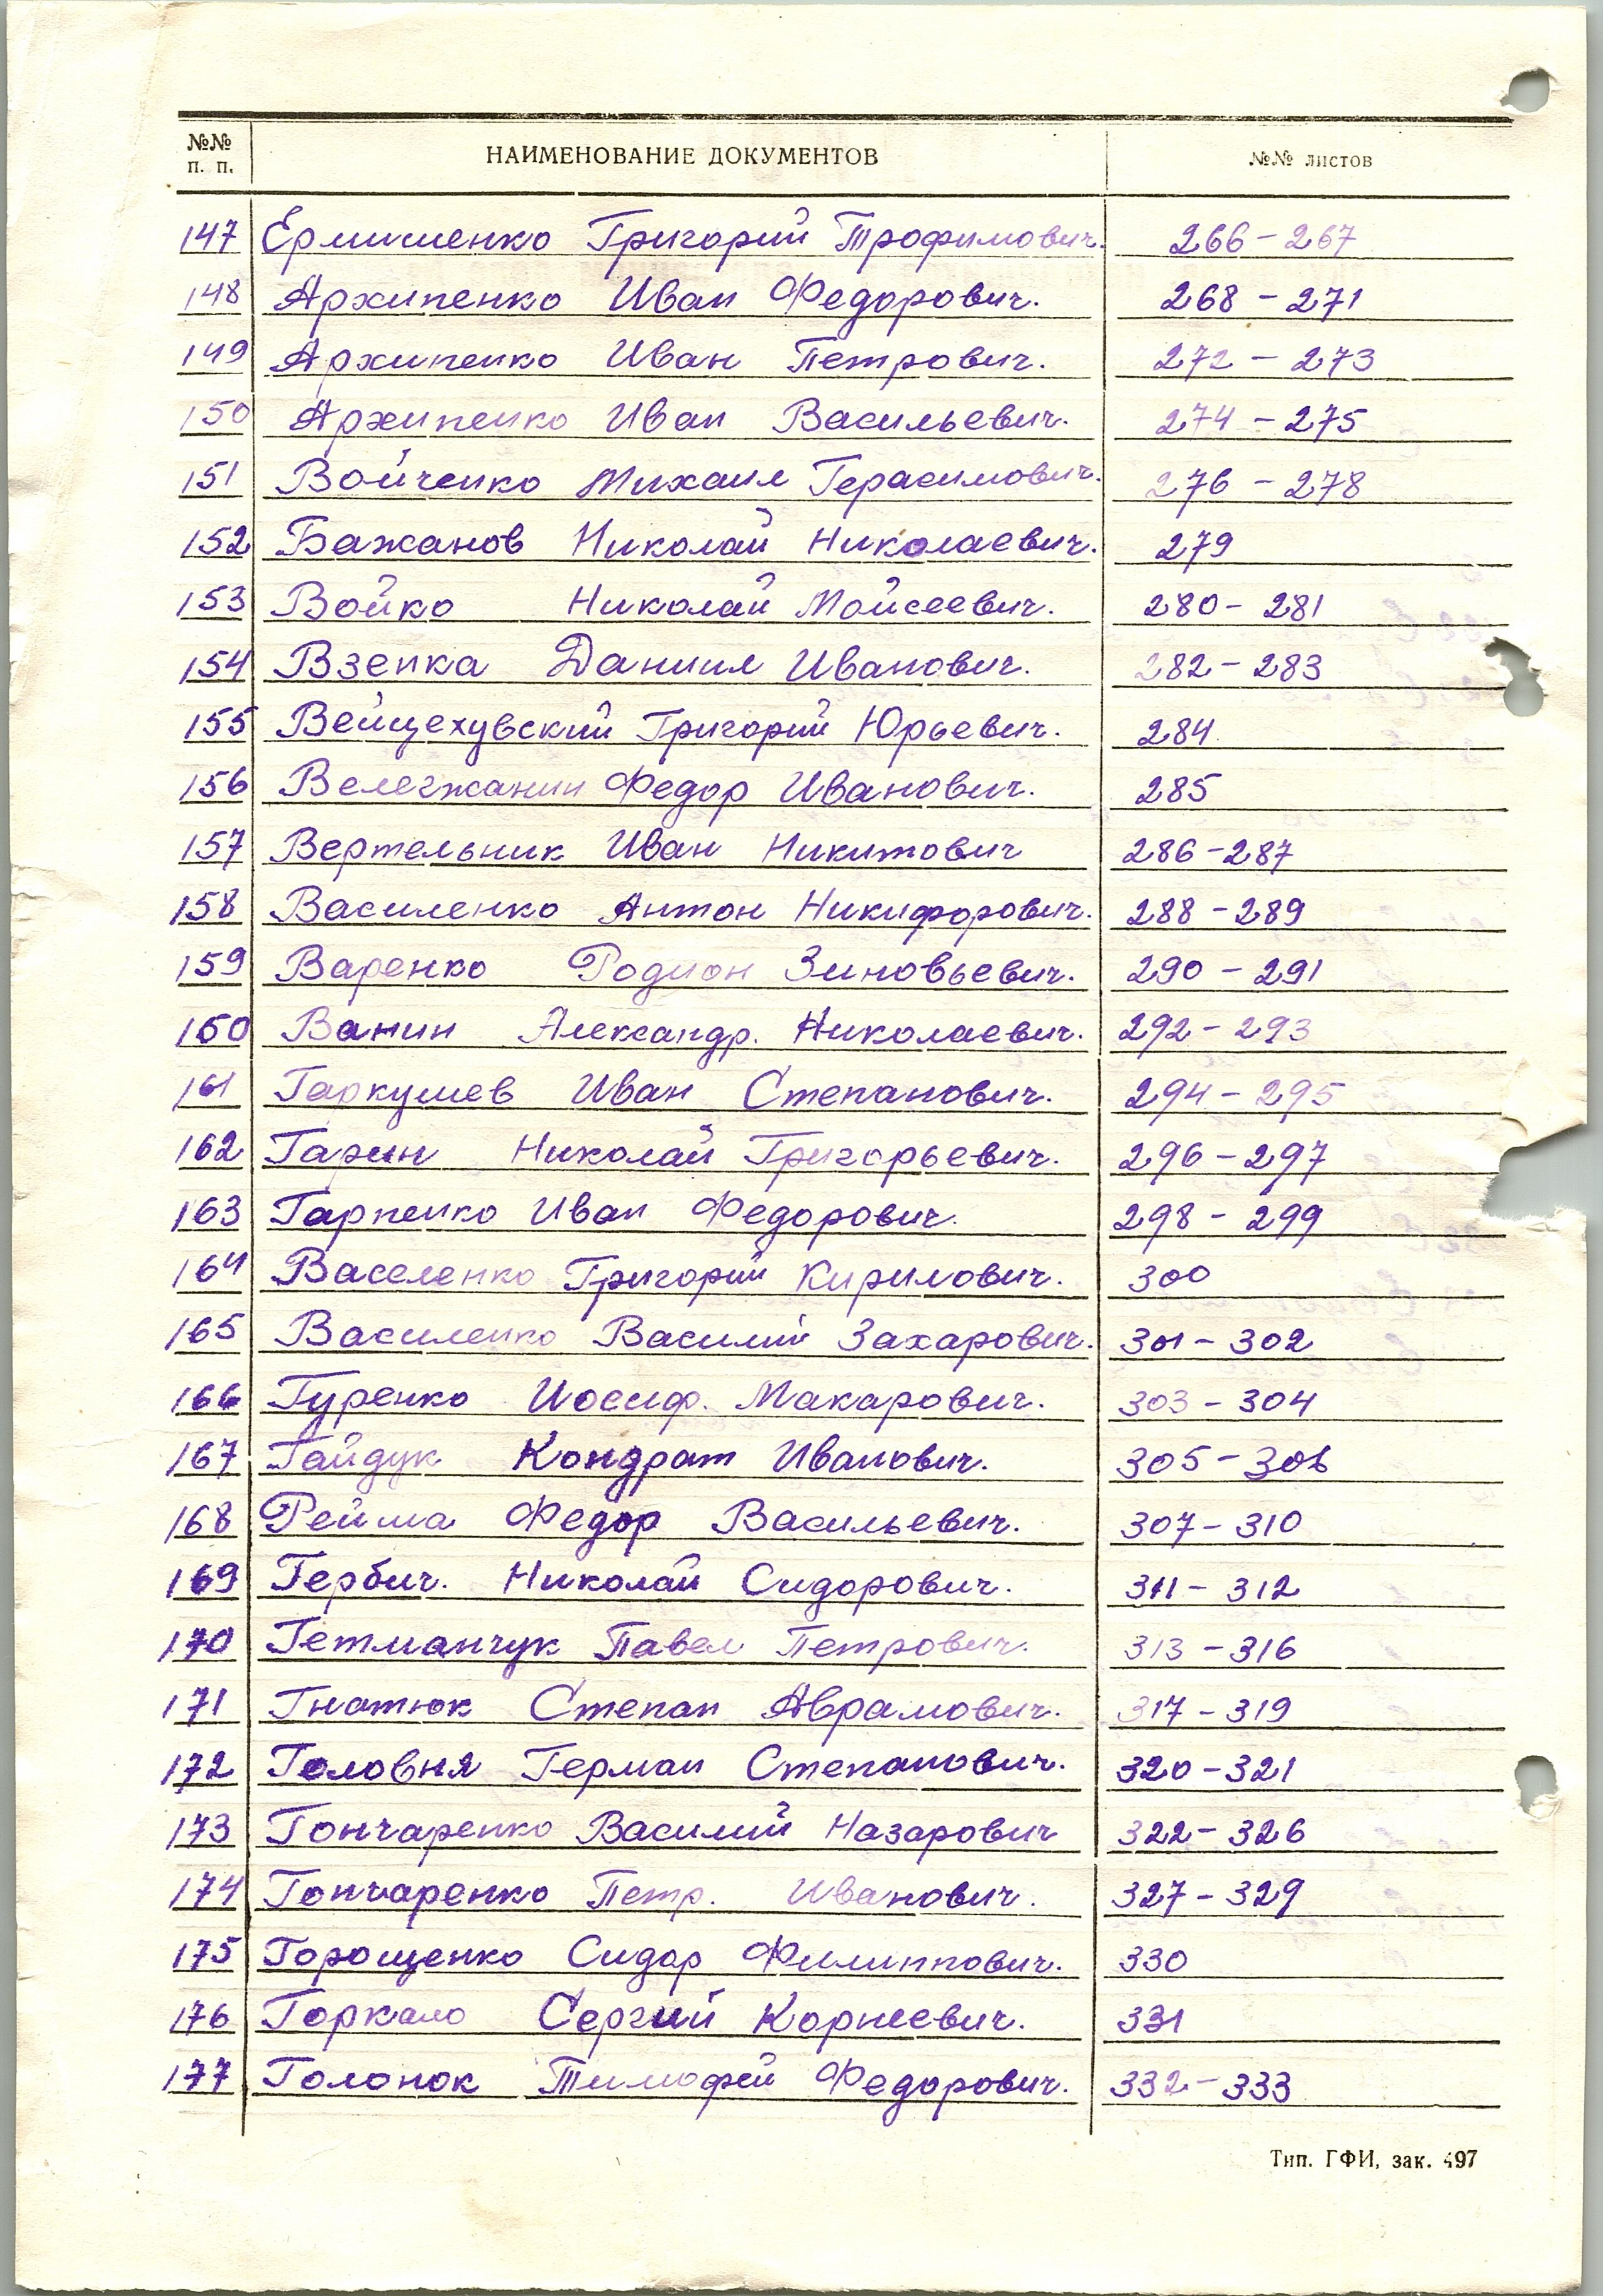 №№ п. п. НАИМЕНОВАНИЕ ДОКУМЕНТОВ №№ листов
147 Ермишенко Григорий Трофимович. 266-267
148 Архипенко Иван Федорович. 268-271
149 Архипенко Иван Петрович. 272-273
150 Архипенко Иван Васильевич. 274-275
151 Войченко Михаил Герасимович. 276-278
152 Бажанов Николай Николаевич. 279
153 Войко Николай Мойсеевич. 280-281
154 Взенка Даниил Иванович. 282-283
155 Вейцеховский Григорий Юрьевич. 284
156 Велегжанин Федор Иванович. 285
157 Вертельник Иван Никитович 286-287
158 Василенко Антон Никифорович. 288-289
159 Варенко Родион Зиновьевич. 290-291
160 Ванин Александр. Николаевич. 292-293
161 Гаркушев Иван Степанович. 294-295
162 Гарин Николай Григорьевич. 296-297
163 Гарпенко Иван Федорович. 298-299
164 Васеленко Григорий Кирилович. 300
165 Василенко Василий Захарович. 301-302
166 Гуренко Иосиф. Макарович. 303-304
167 Гайдук Кондрат Иванович. 305-306
168 Рейма Федор Васильевич. 307-310
169 Гербич. Николай Сидорович. 311-312
170 Гетманчук Павел Петрович. 313-316
171 Гнатюк Степан Аврамович. 317-319
172 Головня Герман Степанович. 320-321
173 Гончаренко Василий Назарович 322-326
174 Гончаренко Петр. Иванович. 327-329
175 Горощенко Сидор Филиппович. 330
176 Горкало Сергий Корнеевич. 331
177 Голонок Тимофей Федорович. 332-333
Тип. ГФИ, зак. 497